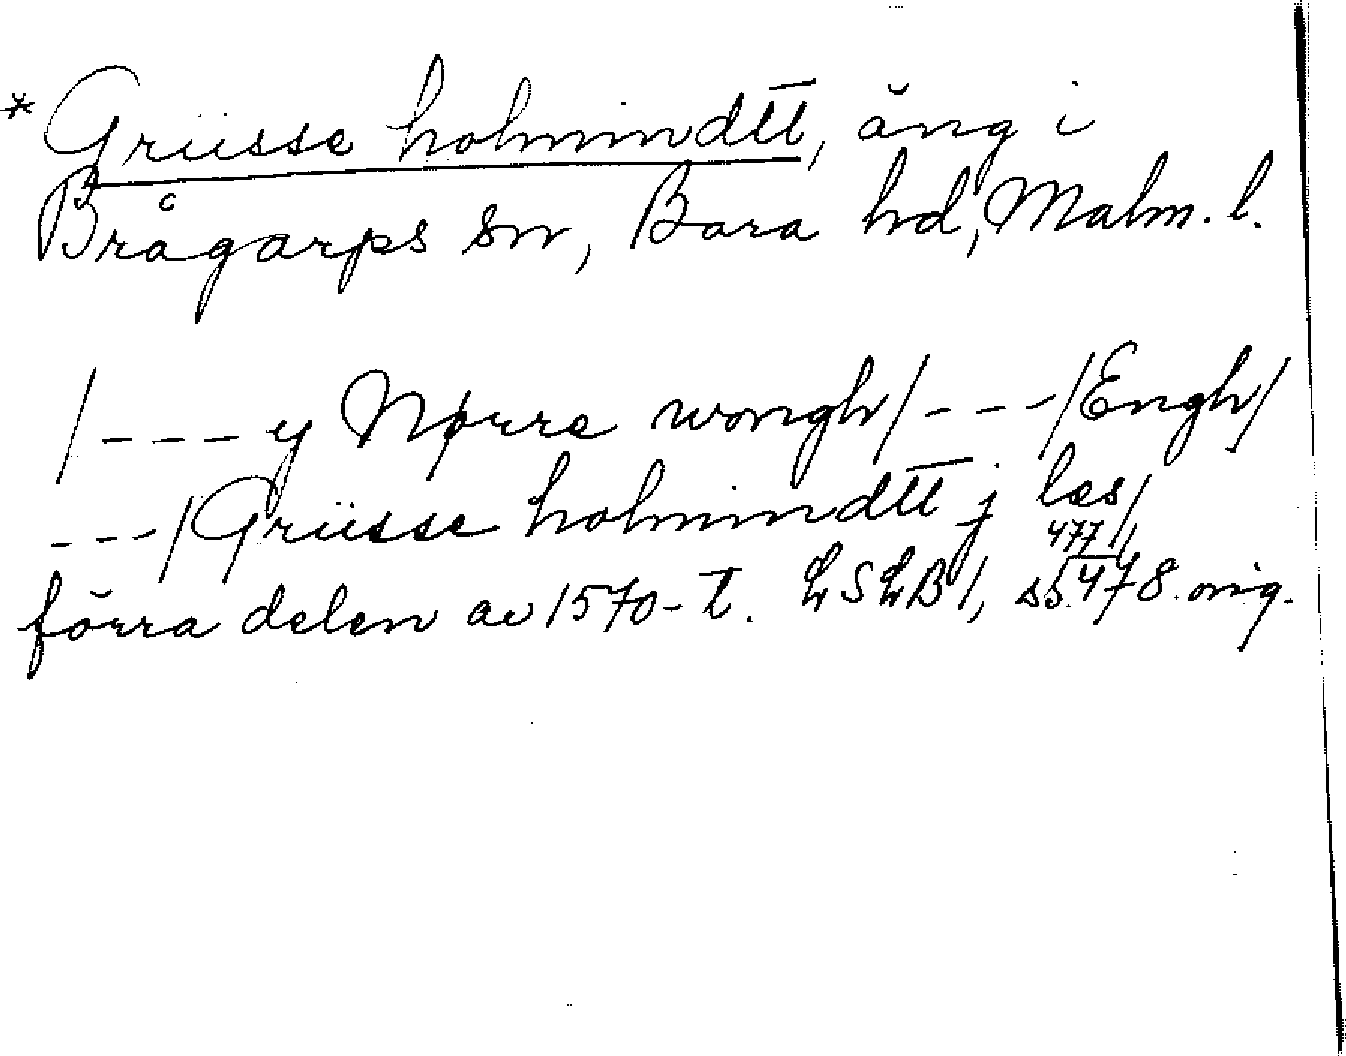 * Grüsse holmindtt, äng i
Brågarps sn, Bara hd, Malm. l.
/---- y Nørre wongh/---/Engh/
---/Grüsse holmindtt j les/
förra delen av 1570-t. LSLB 1, ss 477, 478 orig.